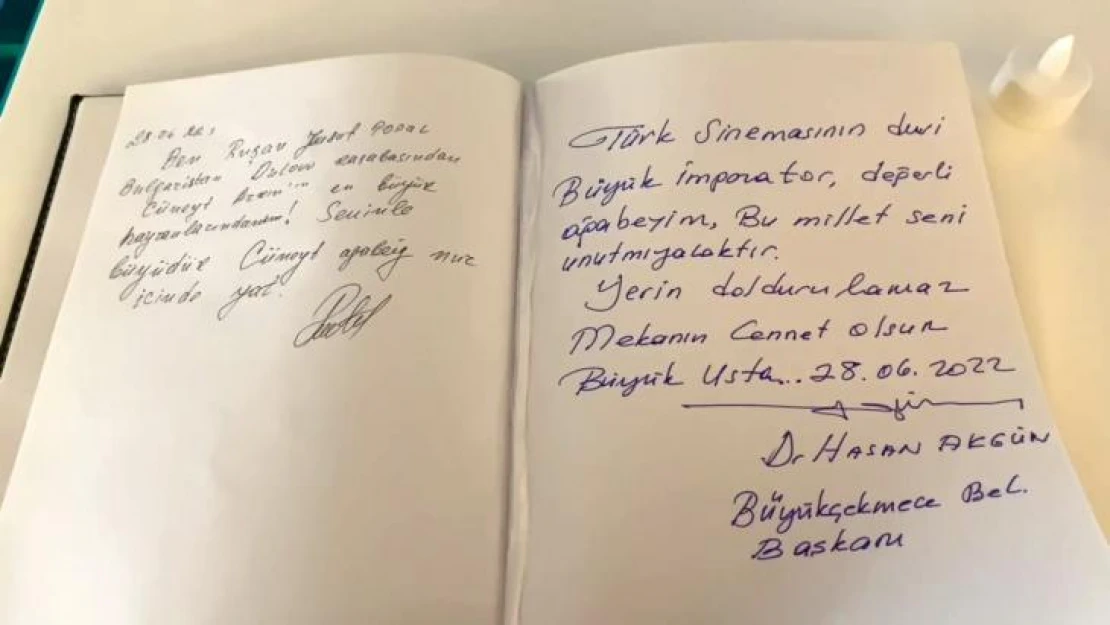 28.06.22
Ben Ruşan Jusuf
Bulgaristan kasabasından
Cüneyt Arkın'ın en büyük
hayranlarındanım! Seninle
büyüdük Cüneyt agabeiy nur
içinde yat.
Türk Sinemasının devi
Büyük İmporator, değerli
ağabeyim, Bu millet seni
unutmıyacaktır.
Yerin doldurulamaz
Mekanın Cennet olsun
Büyük Usta... 28.06.2022
Dr HASAN AKGÜN
Büyükçekmece Bel.
Başkanı